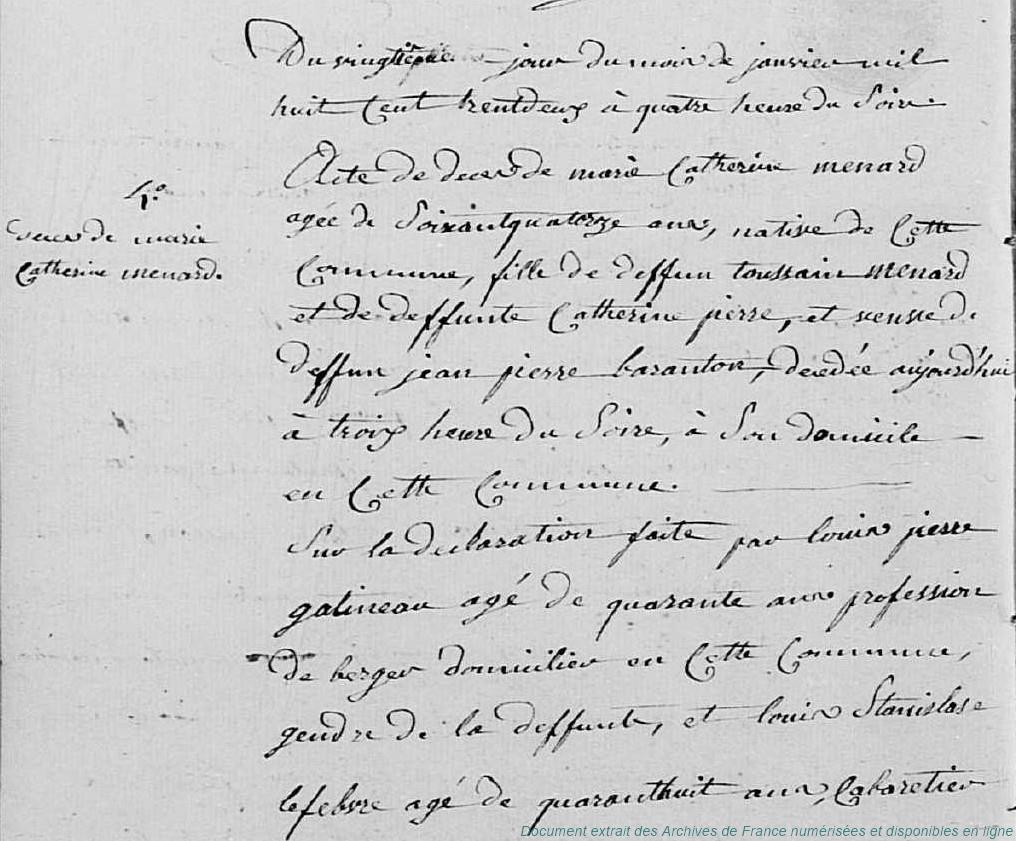 Du vingtième jour du mois de janvier mil
huit Cent trentdeux à quatre heure du Soire.
Acte de deces de marie Catherine menard
agée de Soixantquatorze ans, native de Cette
Commune, fille de deffun toussain menard
et de deffunte Catherine pierre, et veuve de
deffun jean pierre baranton, decedée aujourd'hui
à troix heure du Soire, à Son domicile
en Cette Commune.
4.º
deces de marie
Catherine menard.
Sur la declaration faite par louis pierre
gatineau agé de quarante ans profession
de berger domicilier en Cette Commune,
gendre de la deffunte, et louis Stanislas
lefebvre agé de quaranthuit ans, Cabaretier
Document extrait des Archives de France numérisées et disponibles en ligne